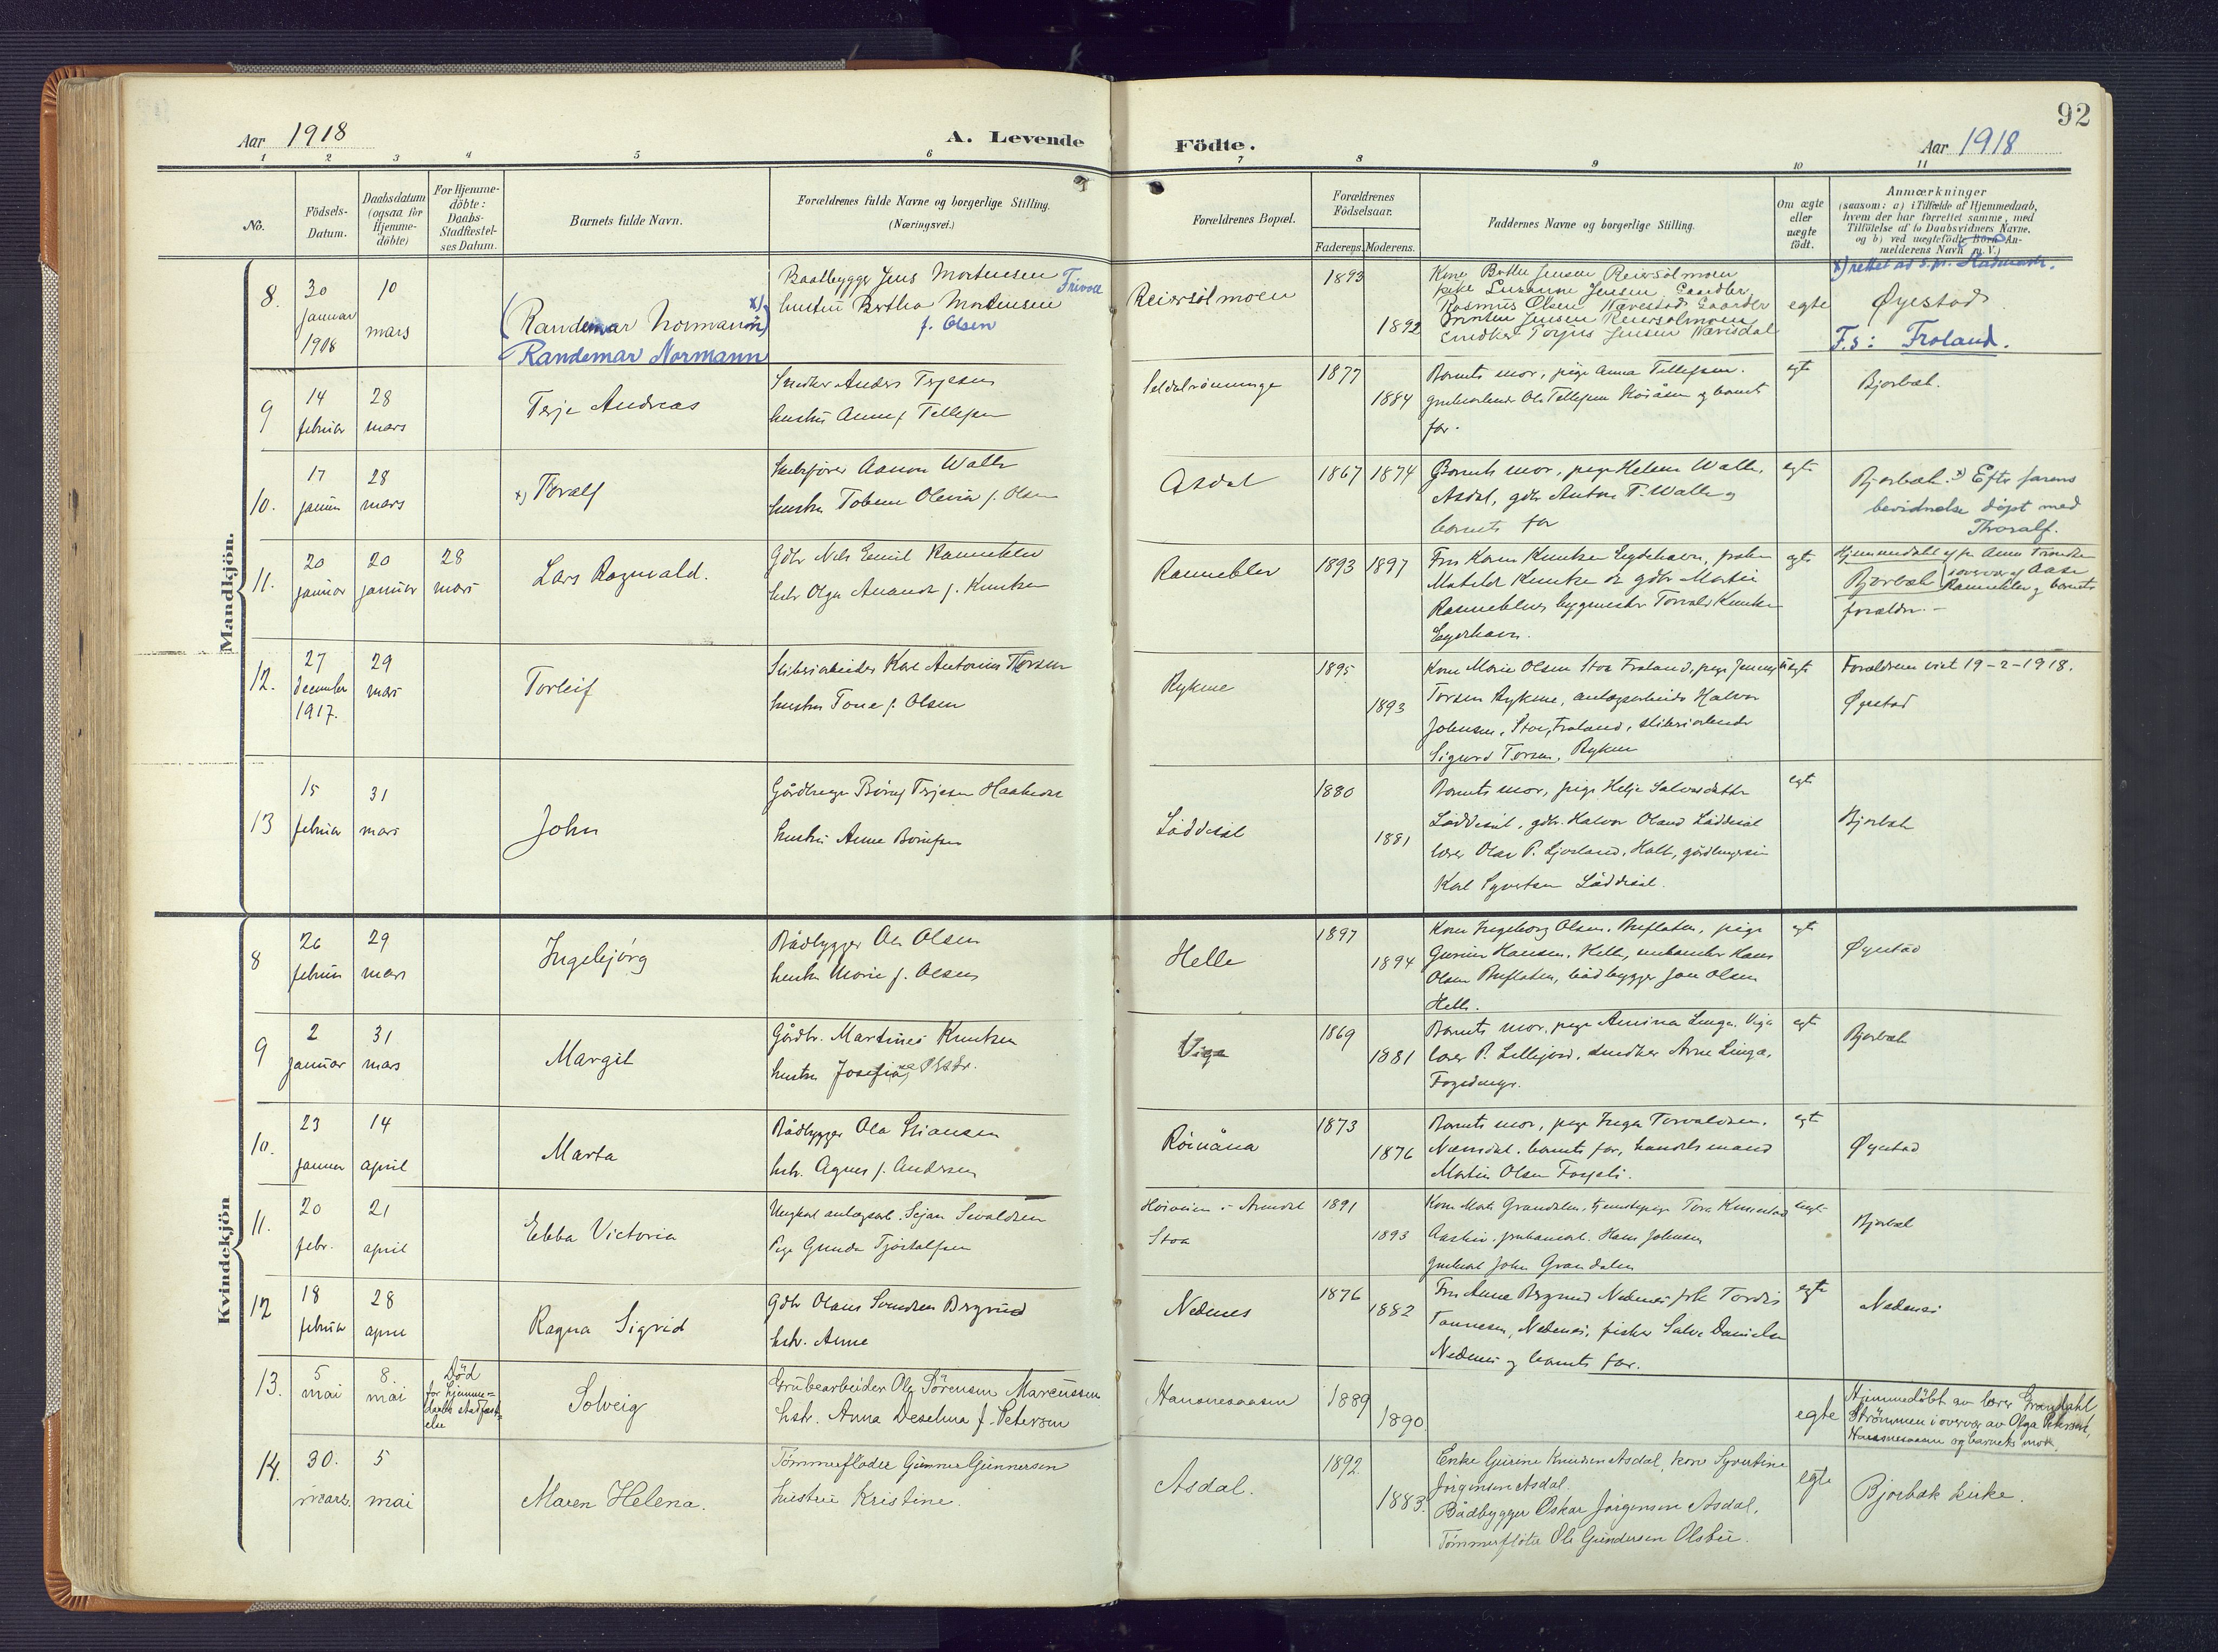 92
Aar 1918
A. Levende
Födte.
Aar 1918
1 2 3 4 5 6 7 8 9 10 11
No.
Födsels-
Datum.
Daabsdatum
(ogsaa for
Hjemme-
döbte)
For Hjemme-
döbte:
Daabs-
Stadfæstel-
ses Datum.
Barnets fulde Navn.
Forældrenes fulde Navne og borgerlige Stilling.
(Næringsvei.)
Forældrenes Bopæl.
Forældrenes
Födselsaar.
Faderens. Moderens.
Faddernes Navne og borgerlige Stilling.
Om ægte
eller
uægte
födt.
Anmærkninger
(saasom: a) i Tilfælde af Hjemmedaab,
hvem der har forrettet samme, med
Tilföielse af to Daabsvidners Navne.
og b) ved uægtefödte Börn An-
melderens Navn o. V.)
Mandkjön.
8.
30
januar
1918
10
mars
(Randemar Normann) x)
Randemar Normann
Baatbygger Jens Mortensen
Trivoll
hustru Bertha Mortensen
f. Olsen
Reiersölmoen
1893
1892
Kone Berthe Jensen Reiersölmoen
pike Susanne Jensen Gaardbr
Rasmus Olsen Nævesdal Gaardbr
Jensen Reiersolmoen
Snedker Torjus Jensen Nævisdal
egte
x) rettet av s.pr.
Øyestad
F.s: Froland.
9
14
februar
28
mars
Terje Andreas
Snedker Anders Terjesen
hustru Anne f. Tellefsen
1877
1884
Barnets mor, pige Anna Tellefsen.
grubearbeider Ole Tellefsen og barnets
far.
egte
Bjorbæk.
10.
17
januar
28
mars
x) Toralf
Aanon Walle
hustru Tobine Olevia f. Olsen
Asdal
1867
1874
Barnets mor, pige Helene Walle,
Asdal, gdbr Anton T. Walle og
barnets far
egte
Bjorbæk. x) Efter farens
bevidnelse døpt med
Thoralf.
11.
20
januar
20
januar
28
mars
Lars Ragnvald.
Gdbr Nils Emil Rannekleiv
hstr Olga Amanda f. Knutsen
Rannekleiv
1893
1897
Fru Karen Knutsen Eydehavn, frøken
Matilde Knutsen og gdbr Martin
Rannekleiv, bygmester Torvald Knutsen
Eydehavn.
egte
Hjemmedøbt af fr. Anna
Bjorbæk i overvær af Aase
Rannekleiv og barnets
forældre. -
12.
27
december
1917.
29
mars
Torleif
Sliberiarbeider Karl Antonius Torsen
hustru Tone f. Olsen
Rykene
1895
1893
Kone Marie Olsen Stoa Froland, pige Jenny
Torsen Rykene, anlægsarbeider Halvor
Johnsen, Stoa, Froland, sliberiarbeider
Sigurd Torsen, Rykene
uegte
Forældrene viet 19-2-1918.
Øyestad
13
15
februar
31
mars
John
Gårdbruger Börue Terjesen Haabesdal
hustru Anne Børuefsen
Løddesöl
1880
1881
Barnets mor, pige Helje Salvesdatter
Løddesöl, gdbr. Halvor Oland Løddesöl
lærer Olav P. Ljosland, Holt, gårdbrugersøn
Karl Syvertsen Løddesöl.
egte
Bjorbæk
Kvindekjön
8
26
februar
29
mars
Ingebjørg
Bådbygger Ole Olsen
hustru Marie f. Olsen
Helle
1897
1894
Kone Ingeborg Olsen, Buflaten, pige
Gunvor Hansen, Helle, Hans
Olsen Buflaten, bådbygger Jon Olsen
Helle.
egte
Øyestad
9
2
januar
31
mars
Margit
Gårdbr. Martinus Knutsen
hustru Josefine Olsdtr.
Viga
1869
1881
Barnets mor, pige Amina Linga, Viga
lærer P. Lillejord, snedker Arne Linga,
egte
Bjorbæk
10.
23
januar
14
april
Marta
Bådbygger Ole Stiansen
hstr. Agnes f. Andersen
Röinåna
1873
1876
Barnets mor, pige Inga Torvaldsen,
Nævisdal. barnets far, handelsmand
Martin Olsen
egte
Øyestad
11.
20
febr.
21
april
Ebba Victoria
Ungkar anlægsarb. Stian Sivaldsen
Pige Gunda Tjöstolfsen
- Arendal
Stoa
1891
1893
Kone Marta Grandalen, tjenestepige Tora
Hans Johnsen
John Grandalen
uegte
Bjorbæk
12
18
februar
28
april
Ragna Sigrid
Gdbr Olaus Svendsen Bergsund
hstr. Anne
Nedenes
1876
1882
Fru Anna Bergsund Nedenes frk Tordis
Tønnesen, Nedenes, fisker Salve Danielsen
Nedenes og barnets far.
egte
Nedenes
13.
5
mai
8.
mai
Död
for hjemme=
daabs stadfæst=
else
Solveig
Grubearbeider Ole Sörensen Marcussen
hstr. Anna Deselina f. Petersen
Hansnesaasen
1889
1890
egte
Hjemmedöbt av lærer Grændahl
Strömmen i overvær av Olga Petersen,
Hansnesaasen og barnets mor.
14.
30.
mars.
5
mai
Maren Helena.
Tömmerfløder Gunner Gunnersen
hustru Kristine.
Asdal.
1892
1883.
Enke Gurine Knudsen Asdal, kone Syvertine
Jörgensen Asdal.
Bådbygger Oskar Jörgensen Asdal.
Tömmerfløter Ole Gundersen Olsbu.
egte
Bjorbæk kirke.